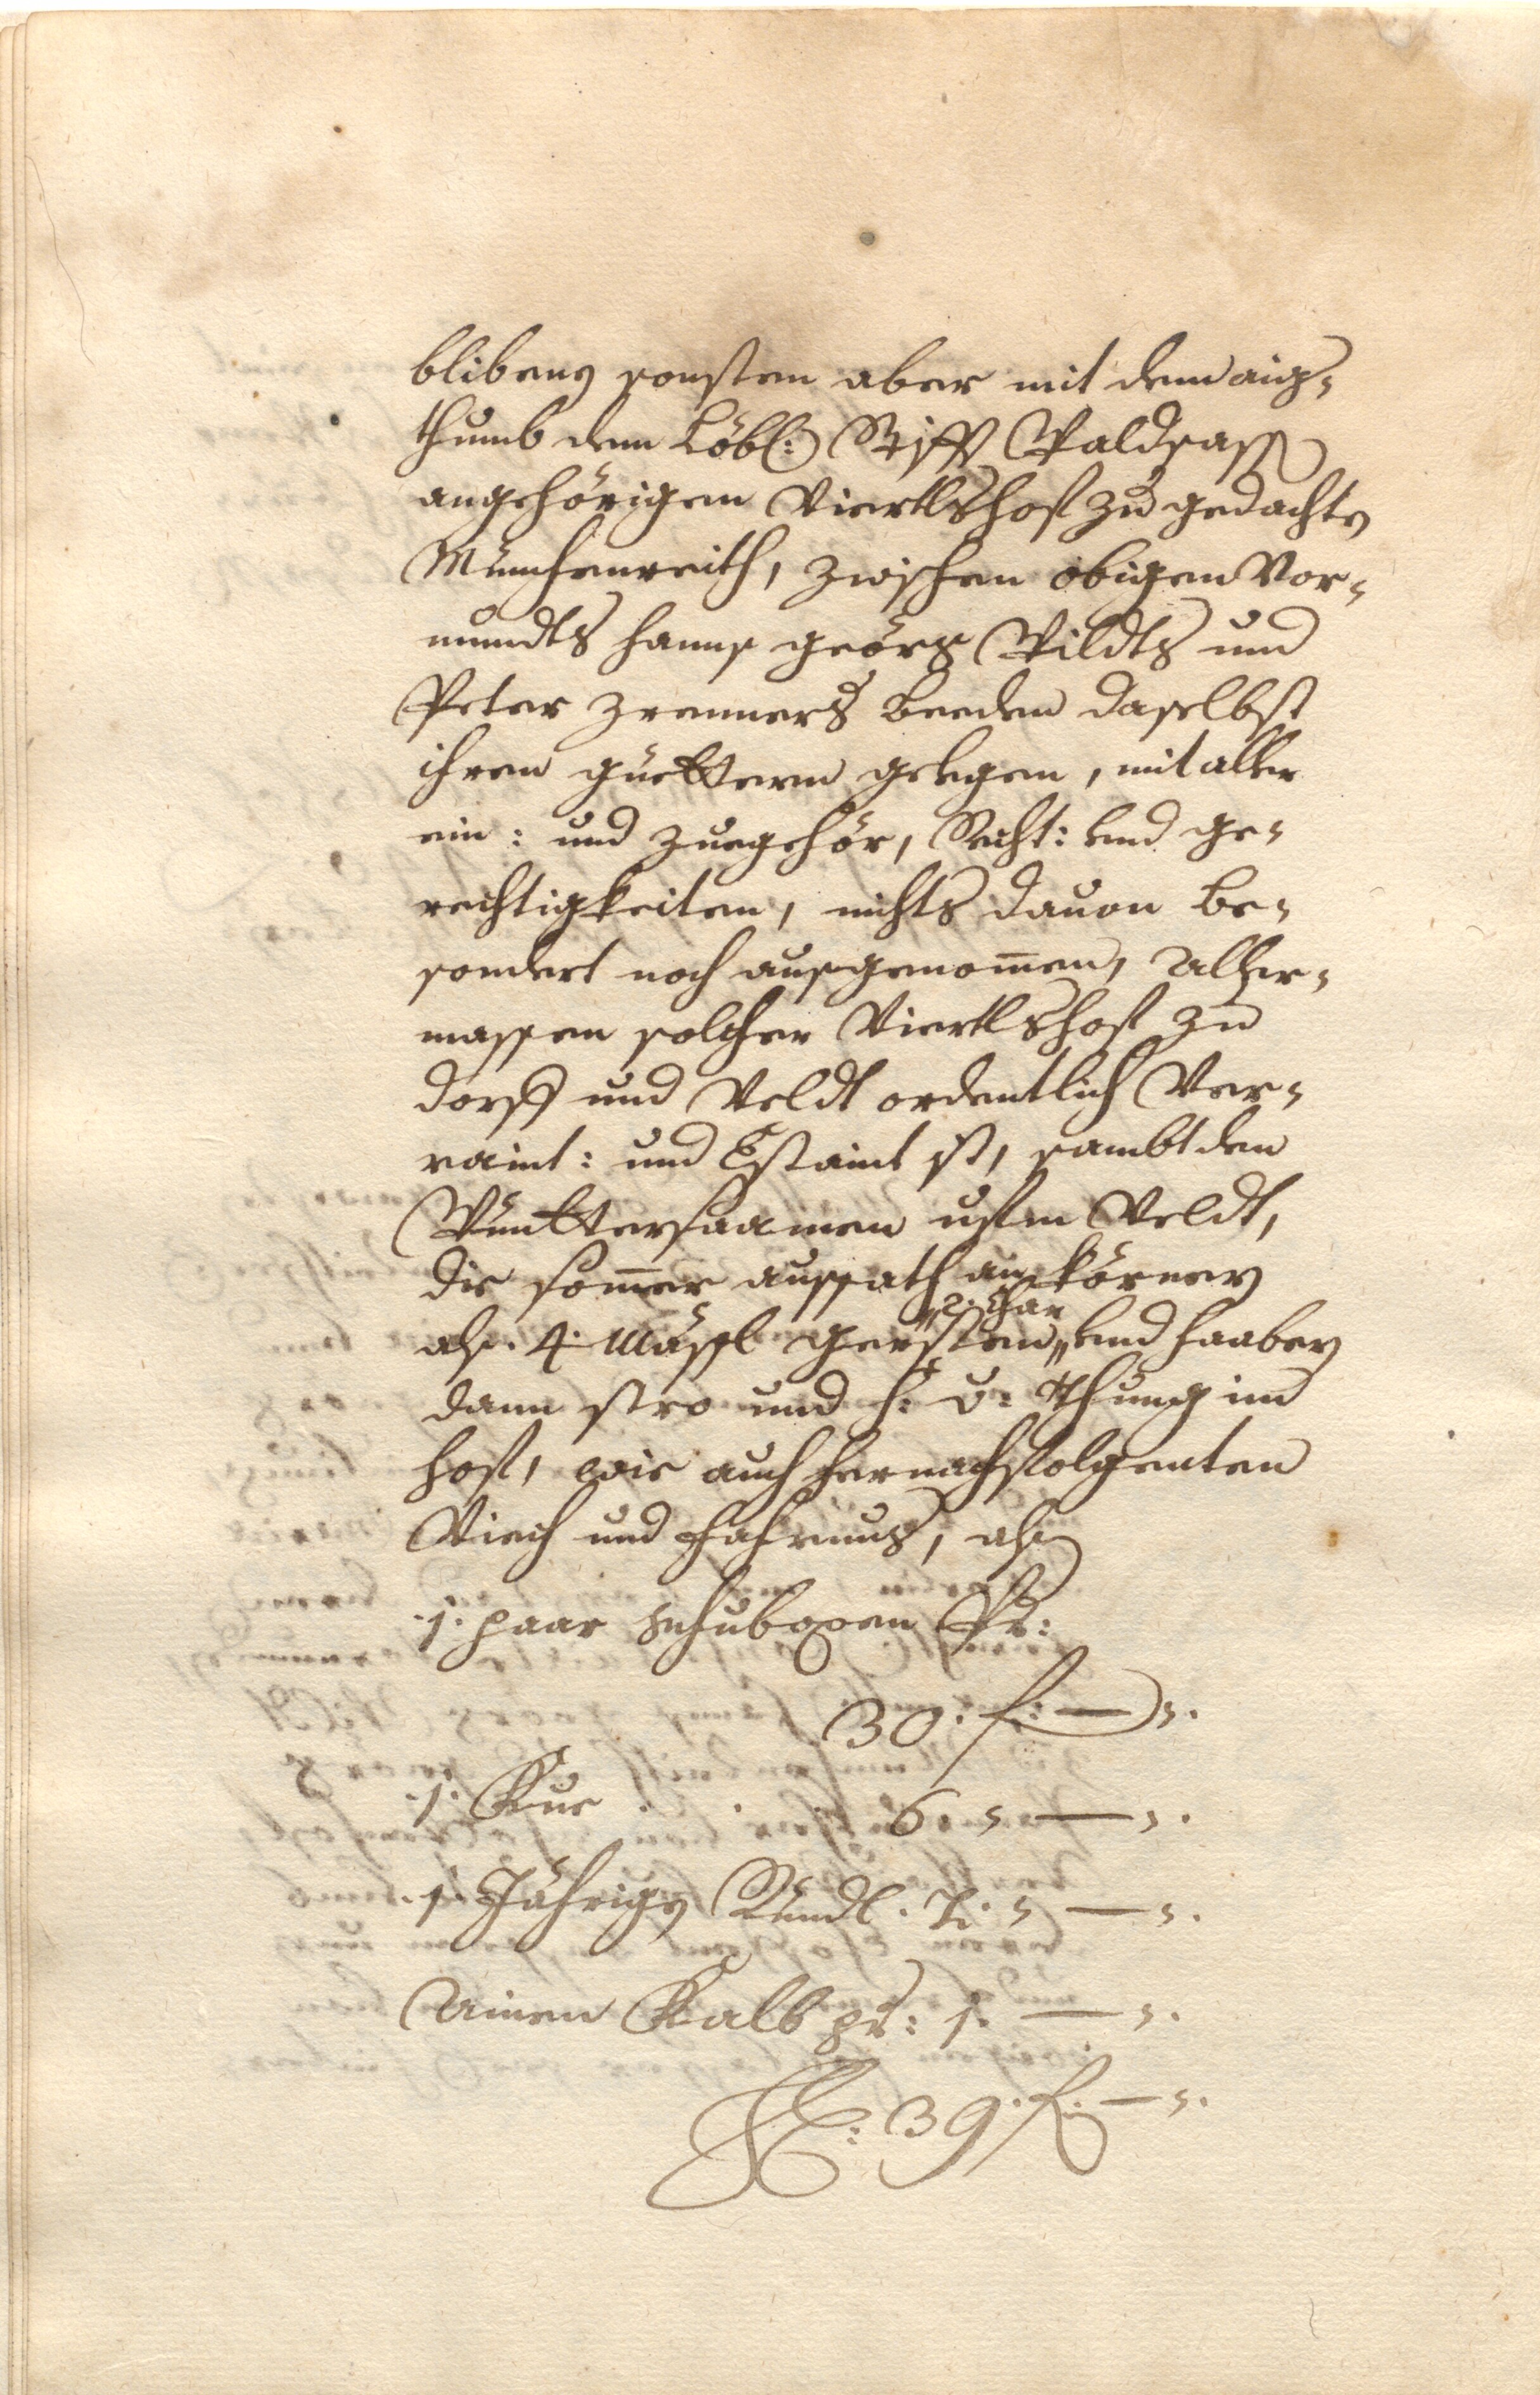 blibenen sonsten aber mit dem aig-
thumb dem Löbl: Stifft Waldsass
angehörigen Viertlshof zu gedachten
Münchenreith, zwischen obigen Vor-
mundts Hanns Geörg Wildts und
Peter Zrenners beeden daselbst
ihren güettern gelegen, mit aller
ein: und zuegehör, Recht: und ge-
rechtigkeiten, nichts dauon be-
sondert noch ausgenom̅en, Aller-
massen solcher Viertlshof zu
dorff und Veldt ordentlich Ver-
raint: und Estaint ist, sambt den
Wünttersaamen ufm Veldt,
die som̅er aussath an körnern
als. 4. Mässl gersten, und haabern
2. Char
dann stro und s: v: thung im
hof, wie auch hernachfolgenten
Viech und Fahrnus, als
.1. paar Schuboxen Pr:
30. f: — s.
.1. Kue . . . 6. s — s.
.1. Jährigs Rindl. 2. s — s.
Ainen Kalb pr: 1. — s.
S: 39. f. — s.